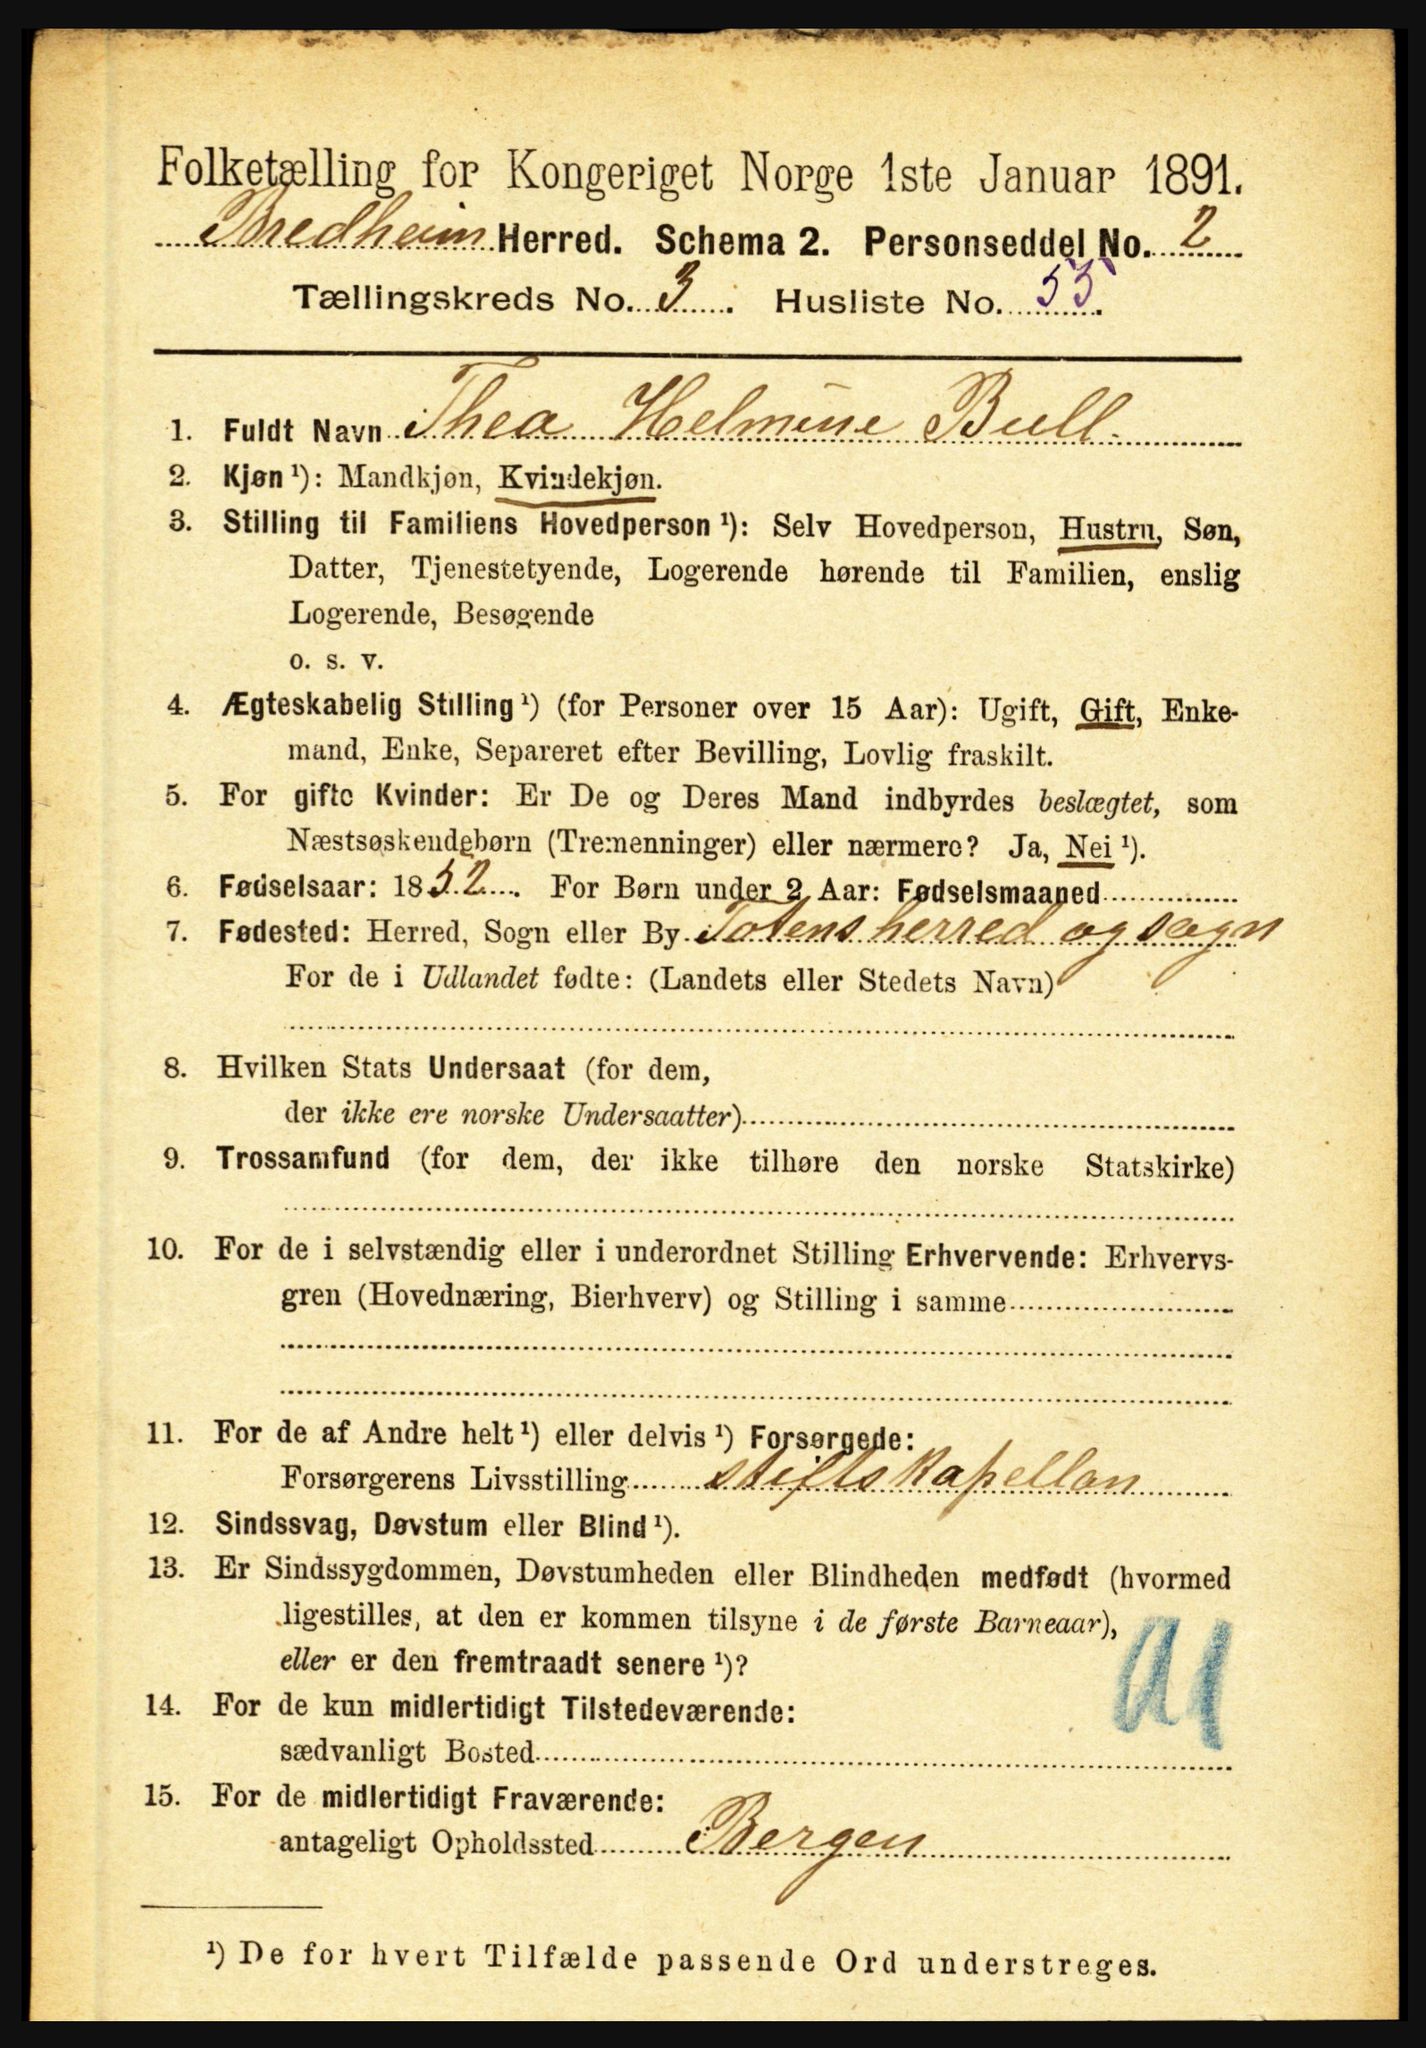 Folketælling for Kongeriget Norge 1ste Januar 1891.
Bredheim Herred. Schema 2. Personseddel No. 2
Tællingskreds No. 3. Husliste No. 55.
1. Fuldt Navn Thea Helmine Bull
2. Kjøn ¹): Mandkjøn, Kvindekjøn.
3. Stilling til Familiens Hovedperson ¹): Selv Hovedperson, Hustru, Søn,
Datter, Tjenestetyende, Logerende hørende til Familien, enslig
Logerende, Besøgende
o. s. v.
4. Ægteskabelig Stilling ¹) (for Personer over 15 Aar): Ugift, Gift, Enke-
mand, Enke, Separeret efter Bevilling, Lovlig fraskilt.
5. For gifte Kvinder: Er De og Deres Mand indbyrdes beslægtet, som
Næstsøskendebørn (Tremenninger) eller nærmere? Ja, Nei ¹).
6. Fødselsaar: 1852. For Børn under 2 Aar: Fødselsmaaned
7. Fødested: Herred, Sogn eller By Totens herred og sogn
For de i Udlandet fødte: (Landets eller Stedets Navn)
8. Hvilken Stats Undersaat (for dem,
der ikke ere norske Undersaatter)
9. Trossamfund (for dem, der ikke tilhøre den norske Statskirke)
10. For de i selvstændig eller i underordnet Stilling Erhvervende: Erhvervs-
gren (Hovednæring, Bierhverv) og Stilling i samme
11. For de af Andre helt ¹) eller delvis ¹) Forsørgede:
Forsørgerens Livsstilling stiftskapellan
12. Sindssvag, Døvstum eller Blind ¹).
13. Er Sindssygdommen, Døvstumheden eller Blindheden medfødt (hvormed
ligestilles, at den er kommen tilsyne i de første Barneaar),
eller er den fremtraadt senere ¹)?
14. For de kun midlertidigt Tilstedeværende:
sædvanligt Bosted
15. For de midlertidigt Fraværende:
antageligt Opholdssted Bergen
¹) De for hvert Tilfælde passende Ord understreges.